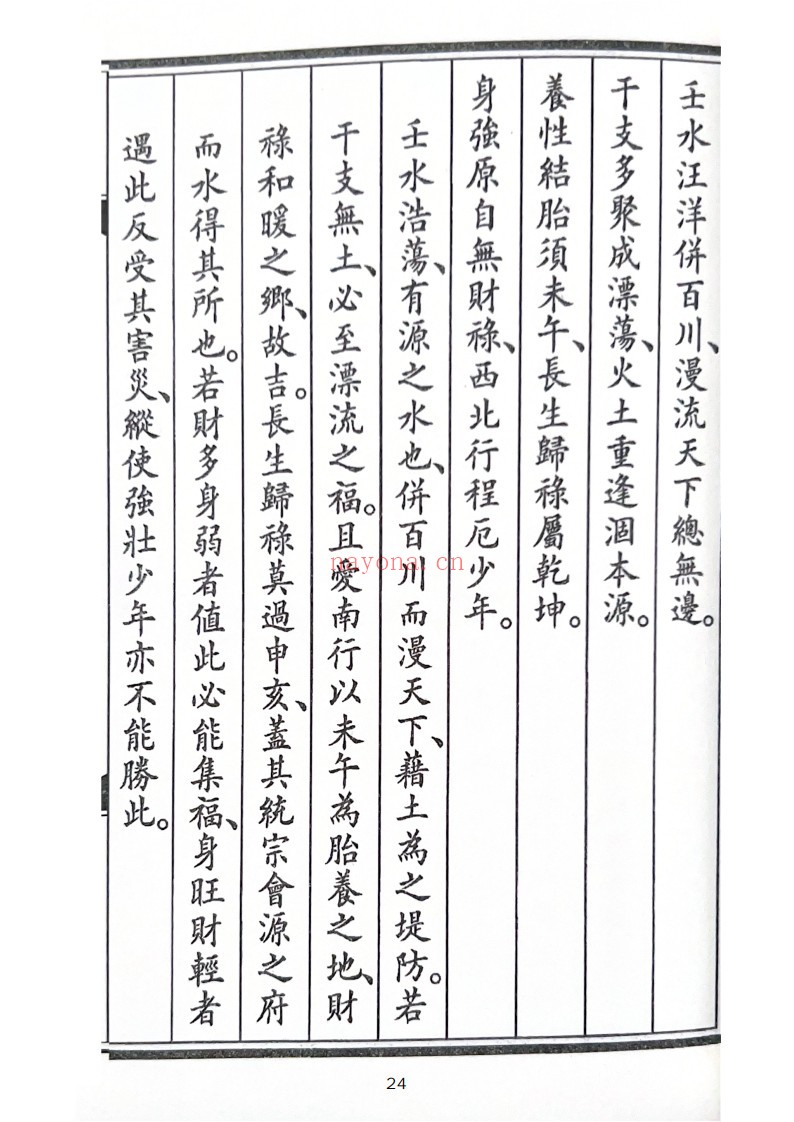 壬水汪洋併百川、漫流天下總無邊。
干支多聚成漂蕩、火土重逢涸本源。
養性結胎須未午、長生歸祿屬乾坤。
身強原自無財祿、西北行程厄少年。
壬水浩蕩、有源之水也、併百川而漫天下、藉土為之堤防。若
干支無土、必至漂流之福。且愛南行以未午為胎養之地、財
祿和暖之鄉、故吉。長生歸祿莫過申亥、蓋其統宗會源之府
而水得其所也。若財多身弱者值此必能集福、身旺財輕者
遇此反受其害災、縱使強壯少年亦不能勝此。
nayona.cn
24